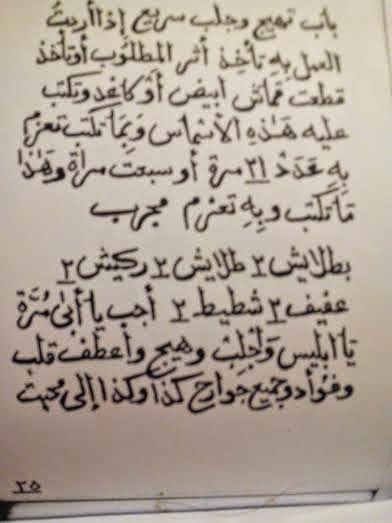 باب تهيج وجلب سريع إذا أردت
العمل بِهِ تأخذ أثر المطلوُب أو تأخذ
قطعت قماش ابيض أو كاغد وتكتب
عليه هَٰذِهِ الأسماس وَبِمَا تكتب تعزم
بِهِ عَدَدْ ٢١ مرة أو سبعت مراة وهَٰذا
مَا تكتب وبِهِ تعزم مجرب
بطلايش ٢ طلايش ٢ ركيش ٢
عفيف ٢ شطيط ٢ أجب يا أبىٰ مُرَّة
يَا ابليس وَاجْلِبْ وهيج واعطف قلب
وفؤاد وجميع جوارح كذا وكذا إلى محبت
٢٥